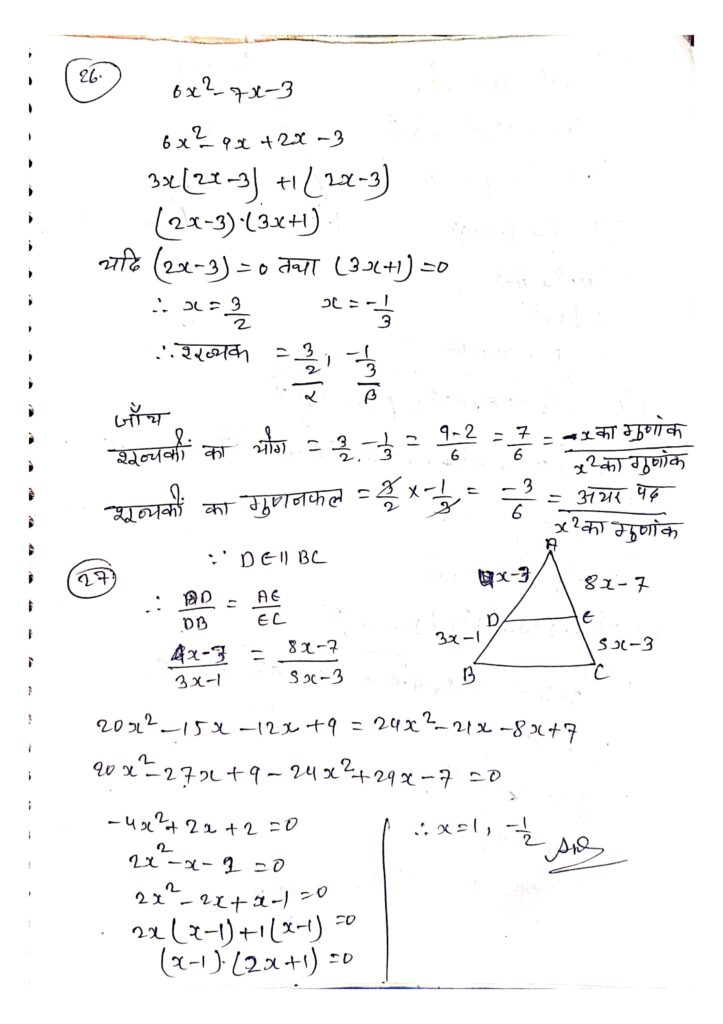 26.
6x²-7x-3
6x²-9x+2x-3
3x(2x-3)+1(2x-3)
(2x-3)·(3x+1)
यदि (2x-3)=0 तथा (3x+1)=0
∴ x=3/2 x=-1/3
∴ शून्यक = 3/2, -1/3
α β
जाँच
शून्यकों का योग = 3/2 - 1/3 = 9-2/6 = 7/6 = -x का गुणांक/x² का गुणांक
शून्यकों का गुणनफल = 3/2 × -1/3 = -3/6 = अचर पद/x² का गुणांक
27.
∵ DE॥BC
∴ AD/DB = AE/EC
4x-3/3x-1 = 8x-7/5x-3
A
4x-3 8x-7
D E
3x-1 5x-3
B C
20x²-15x-12x+9 = 24x²-21x-8x+7
20x²-27x+9-24x²+29x-7=0
-4x²+2x+2=0
2x²-x-1=0
2x²-2x+x-1=0
2x(x-1)+1(x-1)=0
(x-1)·(2x+1)=0
∴ x=1, -1/2 Ans